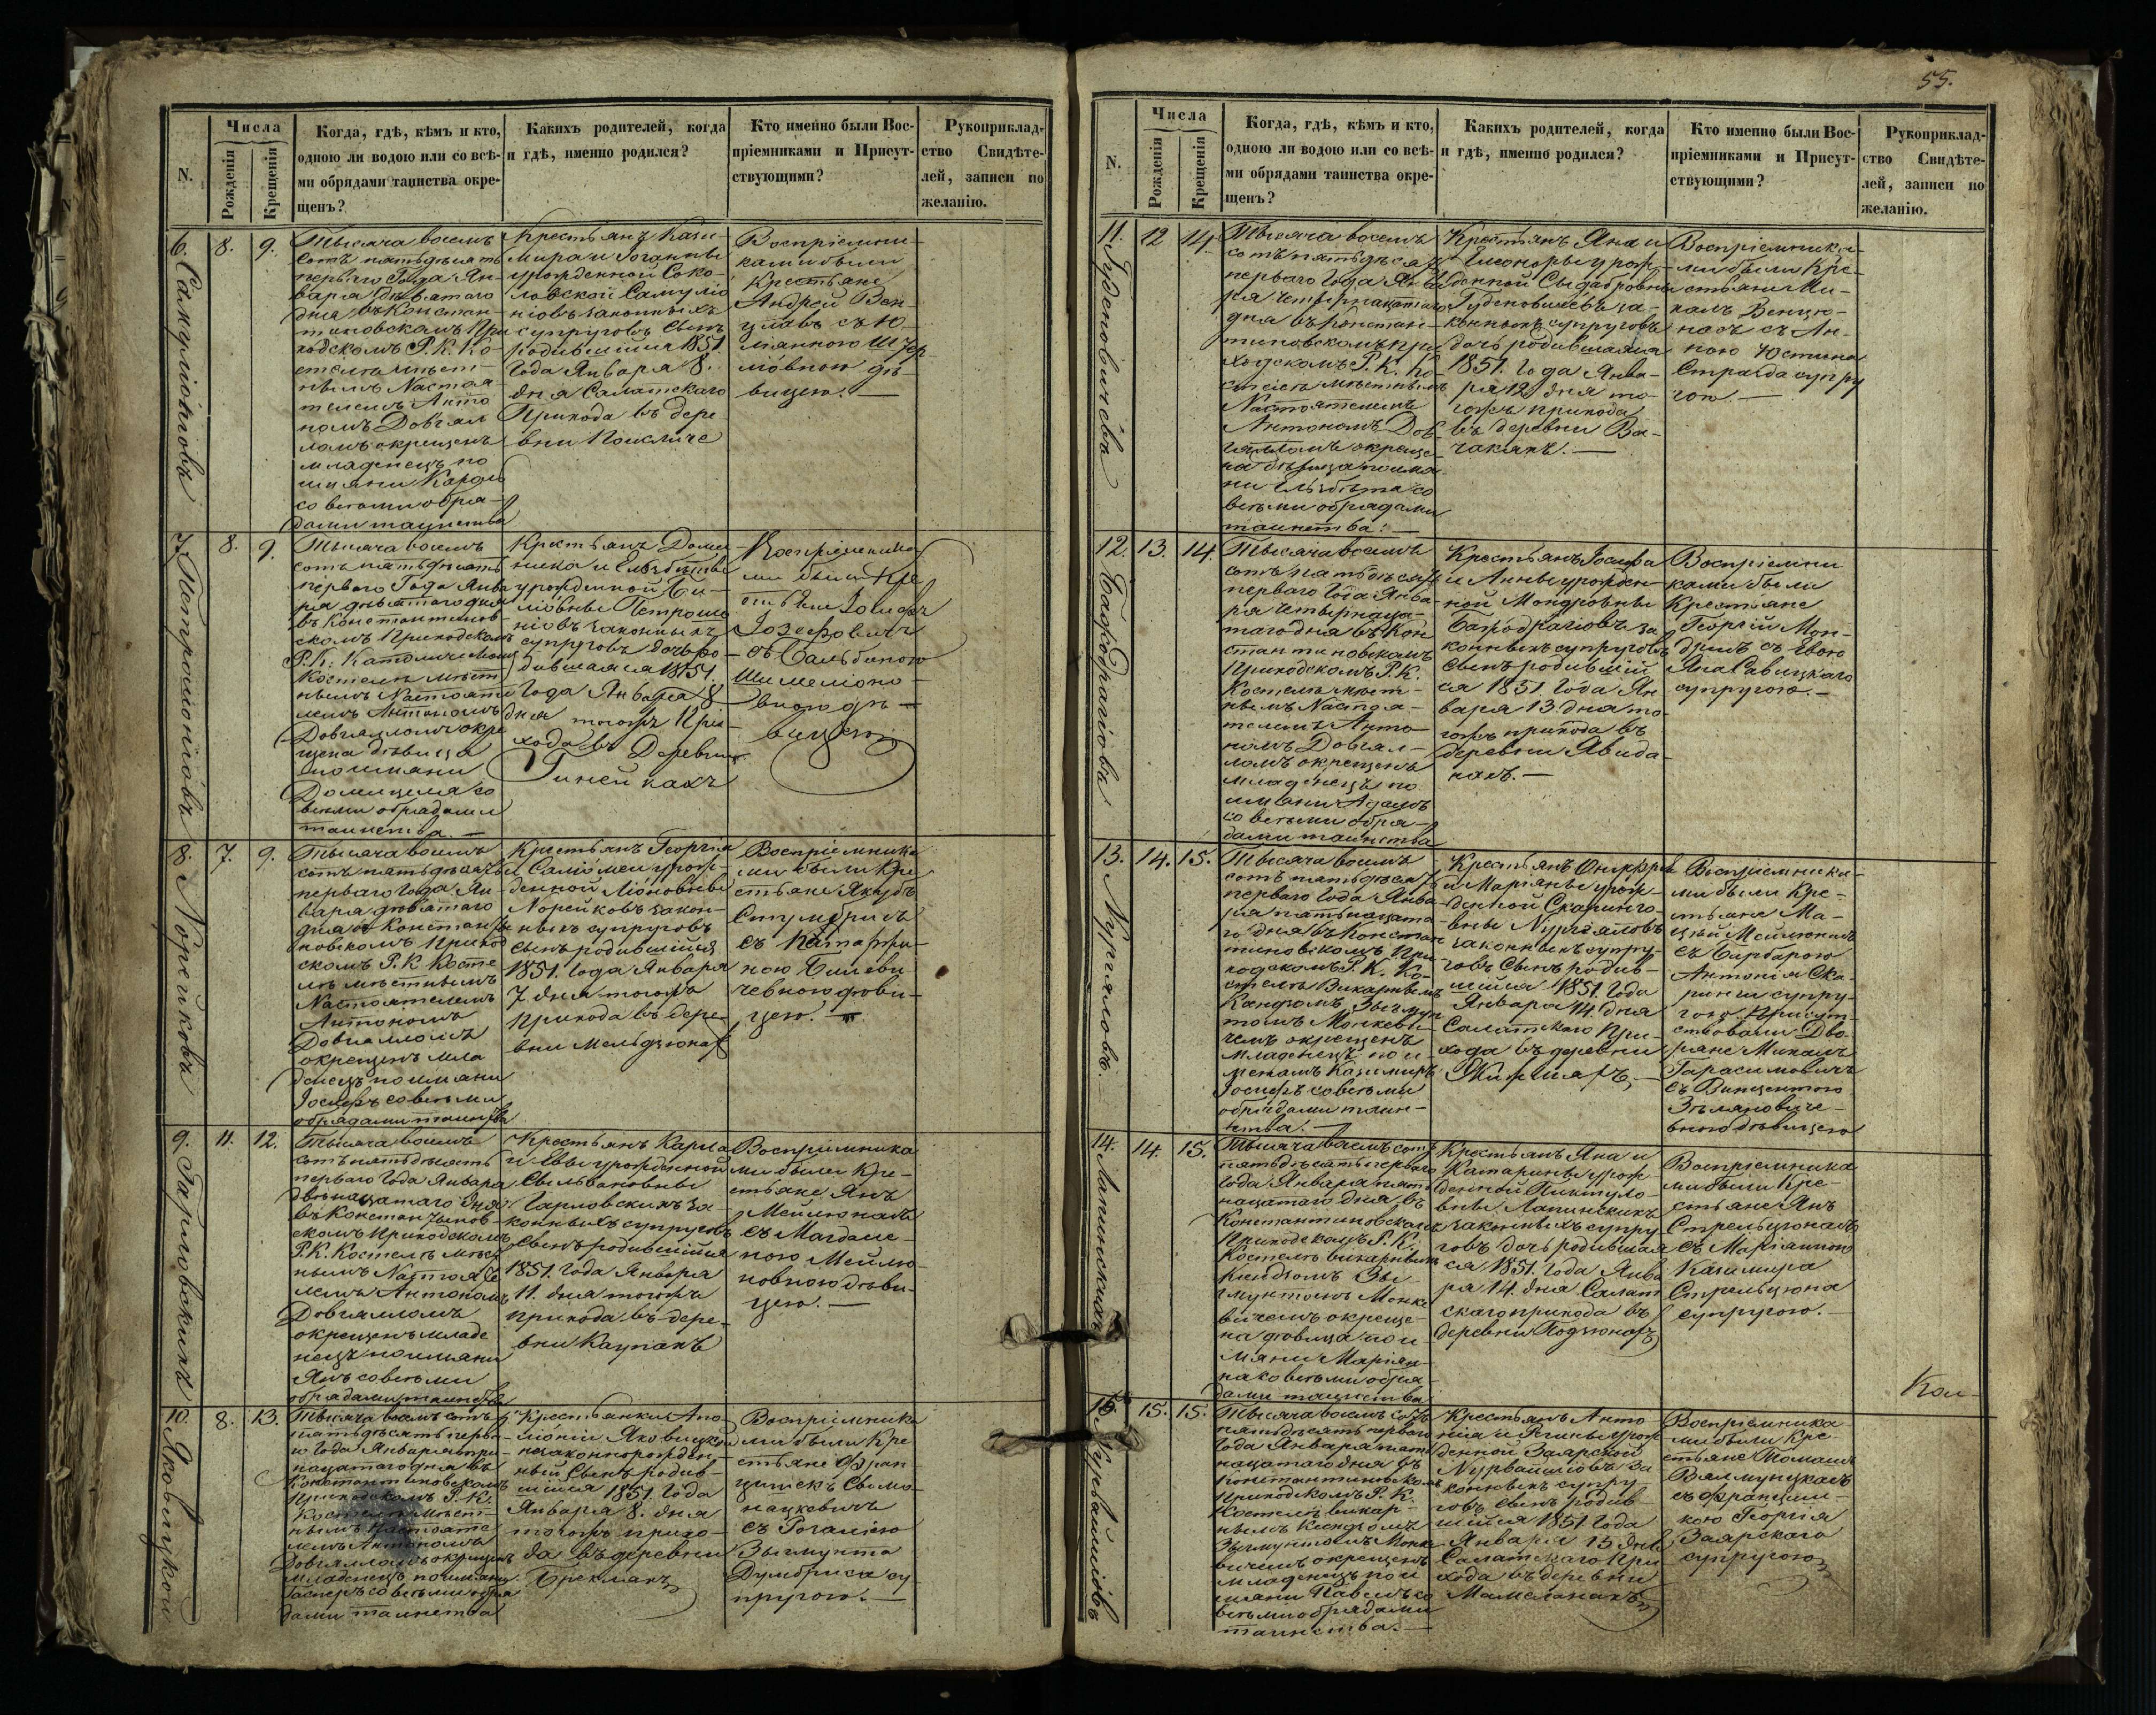 N.
Числа
Рожденія
Крещенія
Когда, гдѣ, кѣмъ и кто,
одною ли водою или со всѣ-
ми обрядами таинства окре-
щенъ?
Какихъ родителей, когда
и гдѣ, именно родился?
Кто именно были Вос-
пріемниками и Присут-
ствующими?
Рукоприклад-
ство Свидѣте-
лей, записи по
желанію.
6.
8.
9.
Тысяча восемь
сотъ пятьдѣсятъ
перваго Года Ян-
варя девятаго
дня въ Констан-
тиновскомъ При
ходскомъ Р. К. Ко-
стелѣ мѣст-
нымъ Настоя-
телемъ Анто
номъ Довгял
ломъ окрещенъ
младенецъ по
имяни Кароль
со всѣми обря-
дами таинства
Крестьянъ Кази-
мира и Іоганны
урожденной Соко-
ловской
супруговъ Сынъ
родившійся 1851.
Года Января 8.
дня Салатскаго
Прихода въ дере
вни
Воспріемни-
ками были
Крестьяне
Андрей Вен-
цлавъ съ Ю-
ліянною
дѣ-
вицею. —
7.
Петрошоніовъ
8.
9.
Тысяча восемь
сотъ пятьдѣсятъ
перваго Года Янва
ря девятаго дня
въ Константинов-
скомъ Приходскомъ
Р. К. Католическомъ
Костелѣ мѣст
нымъ Настояте
лемъ Антономъ
Довгялломъ окре
щена дѣвица
по имяни
Домицеля со
всѣми обрядами
таинства. —
Крестьянъ Доми-
ника и Елѣсбѣты
урожденной
Петрошо
ніовъ законныхъ
супруговъ дочь ро-
дившаяся 1851.
Года Января 8
дня тогожъ При-
хода въ Деревни
Гинейкахъ
Воспріемника
ми были Кре
стьяне Іосифъ
Іозефовичъ
съ Бальбиною
Шимеліоно-
вною дѣ-
вицею
8.
Норейковъ
7.
9.
Тысяча восемь
сотъ пятьдѣсятъ
перваго Года Ян
варя девятаго
дня въ Константи
новскомъ Приход
скомъ Р. К Косте
лѣ мѣстнымъ
Настоятелемъ
Антономъ
Довгялломъ
окрещенъ мла
денецъ по имяни
Іосифъ со всѣми
обрядами таинства
Крестьянъ Георгія
и Саломеи урож-
денной
Норейковъ закон-
ныхъ супруговъ
Сынъ родившійся
1851. Года Января
7. дня тогожъ
прихода въ дере-
вни Мельдзюнахъ
Воспріемника
ми были Кре
стьяне Якубъ
Стумбрисъ
съ Катаржи-
ною
дѣви-
цею. —
9.
Гарловскихъ
11.
12.
Тысяча восемь
сотъ пятьдѣсятъ
перваго Года Января
двенацатаго дня
въ Константинов-
скомъ Приходскомъ
Р. К. Костелѣ мѣст
нымъ Настояте
лемъ Антономъ
Довгялломъ
окрещенъ младе
нецъ по имяни
Янъ со всѣми
обрядами таинства
Крестьянъ Карла
и Евы урожденной
Сильвановны
Гарловскихъ за-
конныхъ супруговъ
Сынъ родившійся
1851. Года Января
11. дня тогожъ
прихода въ дере-
вни Каупахъ
Воспріемника
ми были Кре-
стьяне Янъ
Мейлюнасъ
съ Магдале-
ною Мейлю-
новною дѣви-
цею. —
10.
Яковицкой
8.
13.
Тысяча восемь сотъ
пятьдѣсятъ перва-
го Года Января три-
нацатаго дня въ
Константиновскомъ
Приходскомъ Р. К.
Костелѣ Мѣст-
нымъ Настояте
лемъ Антономъ
Довгялломъ окрещенъ
младенецъ по имяни
Гасперъ со всѣми обря
дами таинства
Крестьянки Апо
лоніи Яковицкой
незаконнорожден-
ный Сынъ родив-
шійся 1851. Года
Января 8. дня
тогожъ прихо-
да въ деревни
Воспріемника
ми были Кре
стьяне Фран
цишекъ Симо-
нацковичъ
съ Розаліею
Зыгмунта
Думбриса су-
пругою. —
55.
N.
Числа
Рожденія
Крещенія
Когда, гдѣ, кѣмъ и кто,
одною ли водою или со всѣ-
ми обрядами таинства окре-
щенъ?
Какихъ родителей, когда
и гдѣ, именно родился?
Кто именно были Вос-
пріемниками и Присут-
ствующими?
Рукоприклад-
ство Свидѣте-
лей, записи по
желанію.
11.
Гуденовичевъ
12
14.
Тысяча восемь
сотъ пятьдѣсятъ
перваго Года Янва
ря четырнацатаго
дня въ Констан-
тиновскомъ При
ходскомъ Р. К. Ко-
стелѣ мѣстнымъ
Настоятелемъ
Антономъ Дов-
гялломъ окреще-
на дѣвица по имя
ни Елѣсбѣта со
всѣми обрядами
таинства. —
Крестьянъ Яна и
Элеоноры урож-
денной
Гуденовичевъ за-
конныхъ супруговъ
дочь родившаяся
1851. Года Янва-
ря 12 дня то-
гожъ прихода
въ деревни Ва-
чакахъ. —
Воспріемника-
ми были Кре-
стьяне Ми-
халъ Венцю-
насъ съ Ан-
ною Юстина
Страгда супру
гою. —
12.
13.
14.
Тысяча восемь
сотъ пятьдѣсятъ
перваго Года Янва-
ря четырнаца-
таго дня въ Кон
стантиновскомъ
Приходскомъ Р. К.
Костелѣ мѣст-
нымъ Настоя-
телемъ Анто
номъ Довгял-
ломъ окрещенъ
младенецъ по
имяни Адамъ
со всѣми обря-
дами таинства
Крестьянъ Іосифа
и Анны урожден-
ной Мондровны
за
конныхъ супруговъ
Сынъ родившій
ся 1851. Года Ян
варя 13 дня то-
гожъ прихода въ
деревни Явида
нахъ. —
Воспріемни
ками были
Крестьяне
Георгій Мон-
дрисъ съ Евою
Яна Савицкаго
супругою. —
13.
Нургяловъ.
14.
15.
Тысяча восемь
сотъ пятьдѣсятъ
перваго Года Янва
ря пятьнацата-
го дня въ Констан
тиновскомъ При
ходскомъ Р. К. Ко-
стелѣ Викарнымъ
Ксендзомъ Зыгмун
томъ Монкеви-
чемъ окрещенъ
младенецъ по и-
менамъ Казимиръ
Іосифъ со всѣми
обрядами таин-
ства. —
Крестьянъ Онуфрія
и Маріянны урож-
денной Скаринго-
вны Нургяловъ
законныхъ супру-
говъ Сынъ родив-
шійся 1851. Года
Января 14. дня
Салатскаго При-
хода въ деревни
Воспріемника-
ми были Кре-
стьяне Ма-
цѣй Мейлюнасъ
съ Барбарою
Антонія Ска-
ринги супру-
гою. Присут-
ствовали Дво-
ряне Михаилъ
Гарасимовичъ
съ Винцентою
Зѣляновиче-
вною дѣвицею
14.
Лапинскихъ
14.
15.
Тысяча восемь сотъ
пятьдѣсятъ перваго
Года Января пять
нацатаго дня въ
Константиновскомъ
Приходскомъ Р. К.
Костелѣ викарнымъ
Ксендзомъ Зы-
гмунтомъ Монке
вичемъ окреще-
на дѣвица по и-
мяни Маріян-
на со всѣми обря-
дами таинства
Крестьянъ Яна и
Катарины урож
денной Пиктуло-
вны Лапинскихъ
законныхъ супру
говъ дочь родившая
ся 1851. Года Янва
ря 14. дня Салат
скаго прихода въ
деревни Подзюнахъ
Воспріемника
ми были Кре-
стьяне Янъ
Стрельцюнасъ
съ Маріанною
Казимира
Стрельцюна
супругою. —
15.
Нурвайшовъ
15.
15.
Тысяча восемь сотъ
пятьдѣсятъ перваго
Года Января пять
нацатаго дня въ
Константиновскомъ
Приходскомъ Р. К.
Костелѣ викар-
нымъ Ксендзомъ
Зыгмунтомъ Монке
вичемъ окрещенъ
младенецъ по и
мяни Павелъ со
всѣми обрядами
таинства. —
Крестьянъ Анто
нія и Регины урож
денной Заярской
за
конныхъ супру
говъ Сынъ родив
шійся 1851 Года
Января 15 дня
Салатскаго При
хода въ деревни
Воспріемника
ми были Кре-
стьяне Томашъ
съ Францишк-
кою Георгія
Заярскаго
супругою